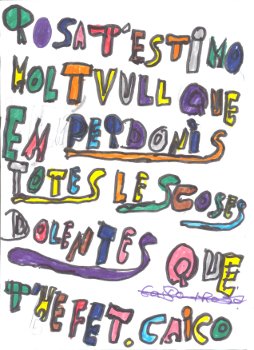 ROSA T'ESTIMO
MOLT VULL QUE
EM PERDONIS
TOTES LES COSES
DOLENTES QUE
T'HE FET. CAICO